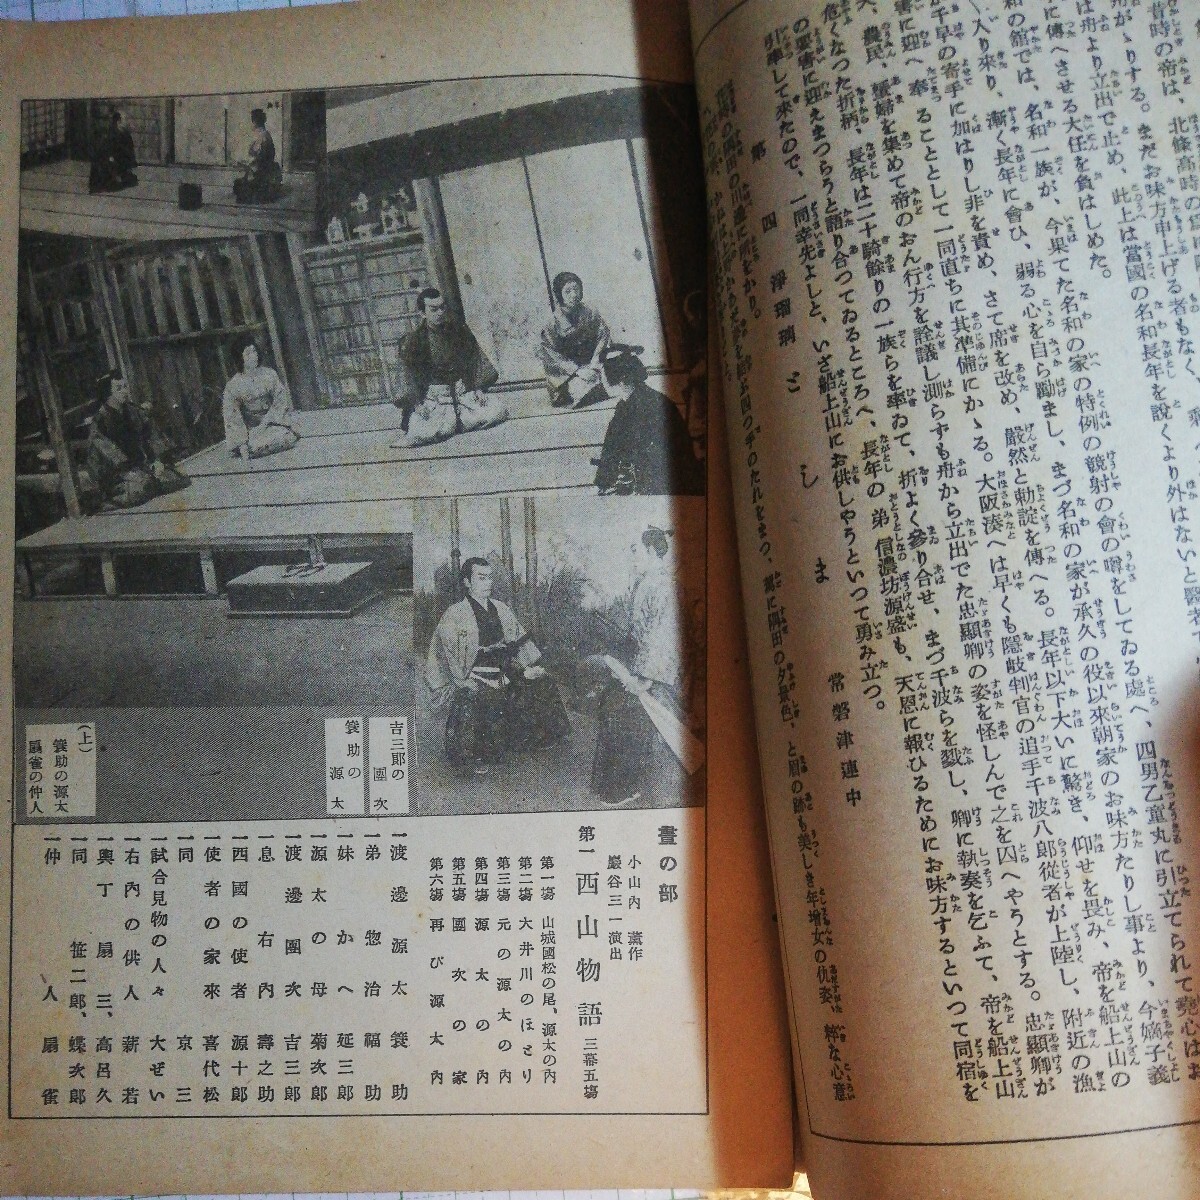 昔時の帝は、北條高時の
舟がゝりする。まだお味方申上げる者もなく、
は舟より立出で止め、此上は當國の名和長年を說くより外はないと
に傳へさせる大任を負はしめた。
和の館では、名和一族が、今果てた名和の家の特例の競射の會の噂をしてゐる處へ、四男乙童丸に引立てられて
入り來り、漸く長年に會ひ、弱る心を自ら勵まし、まづ名和の家が承久の役以來朝家のお味方たりし事より、今嫡子義
が千早の寄手に加はりし非を責め、さて席を改め、嚴然と勅諚を傳へる。長年以下大いに驚き、仰せを畏み、帝を船上山の
害に迎へ奉ることとして一同直ちに其準備にかゝる。大阪湊へは早くも隱岐判官の追手千波八郎從者が上陸し、附近の漁
夫、農民、蜑婦を集めて帝のおん行方を詮議し測らずも舟から立出でた忠顯卿の姿を怪しんで之を囚へやうとする。忠顯卿が
危くなった折柄、長年は二十騎餘りの一族らを率ゐて、折よく參り合せ、まづ千波らを戮し、卿に執奏を乞ふて、帝を船上山
の要害に迎えまつらうと語り合つてゐるところへ、長年の弟信濃坊源盛も、天恩に報ひるためにお味方するといつて同宿を
引率して來たので、一同幸先よしと、いざ船上山にお供しやうといつて勇み立つ。
第四 淨瑠璃 としま 常磐津連中
隅田の川邊に
四つ手のたれをまつ、駕に隅田の夕景色、と眉の跡も美しき年增女の仇姿、粹な心意
吉三郎の團次
簑助の源太
(上)
簑助の源太
扇雀の仲人
晝の部
小山內薰作
巖谷三一演出
第一 西山物語 三幕五場
第一場 山城國松の尾、源太の內
第二場 大井川のほとり
第三場 元の源太の內
第四場 源太の內
第五場 團次の家
第六場 再び源太內
一渡邊源太 簑助
一弟惣治 福助
一妹かへ 延三郎
一源太の母 菊次郎
一渡邊團次 吉三郎
一息右內 壽之助
一西國の使者 源十郎
一使者の家來 喜代松
一同 京三
一試合見物の人々 大ぜい
一右內の供人 薪若
一輿丁 扇三、高呂久
一同 笹二郎、蝶次郎
一仲人 扇雀